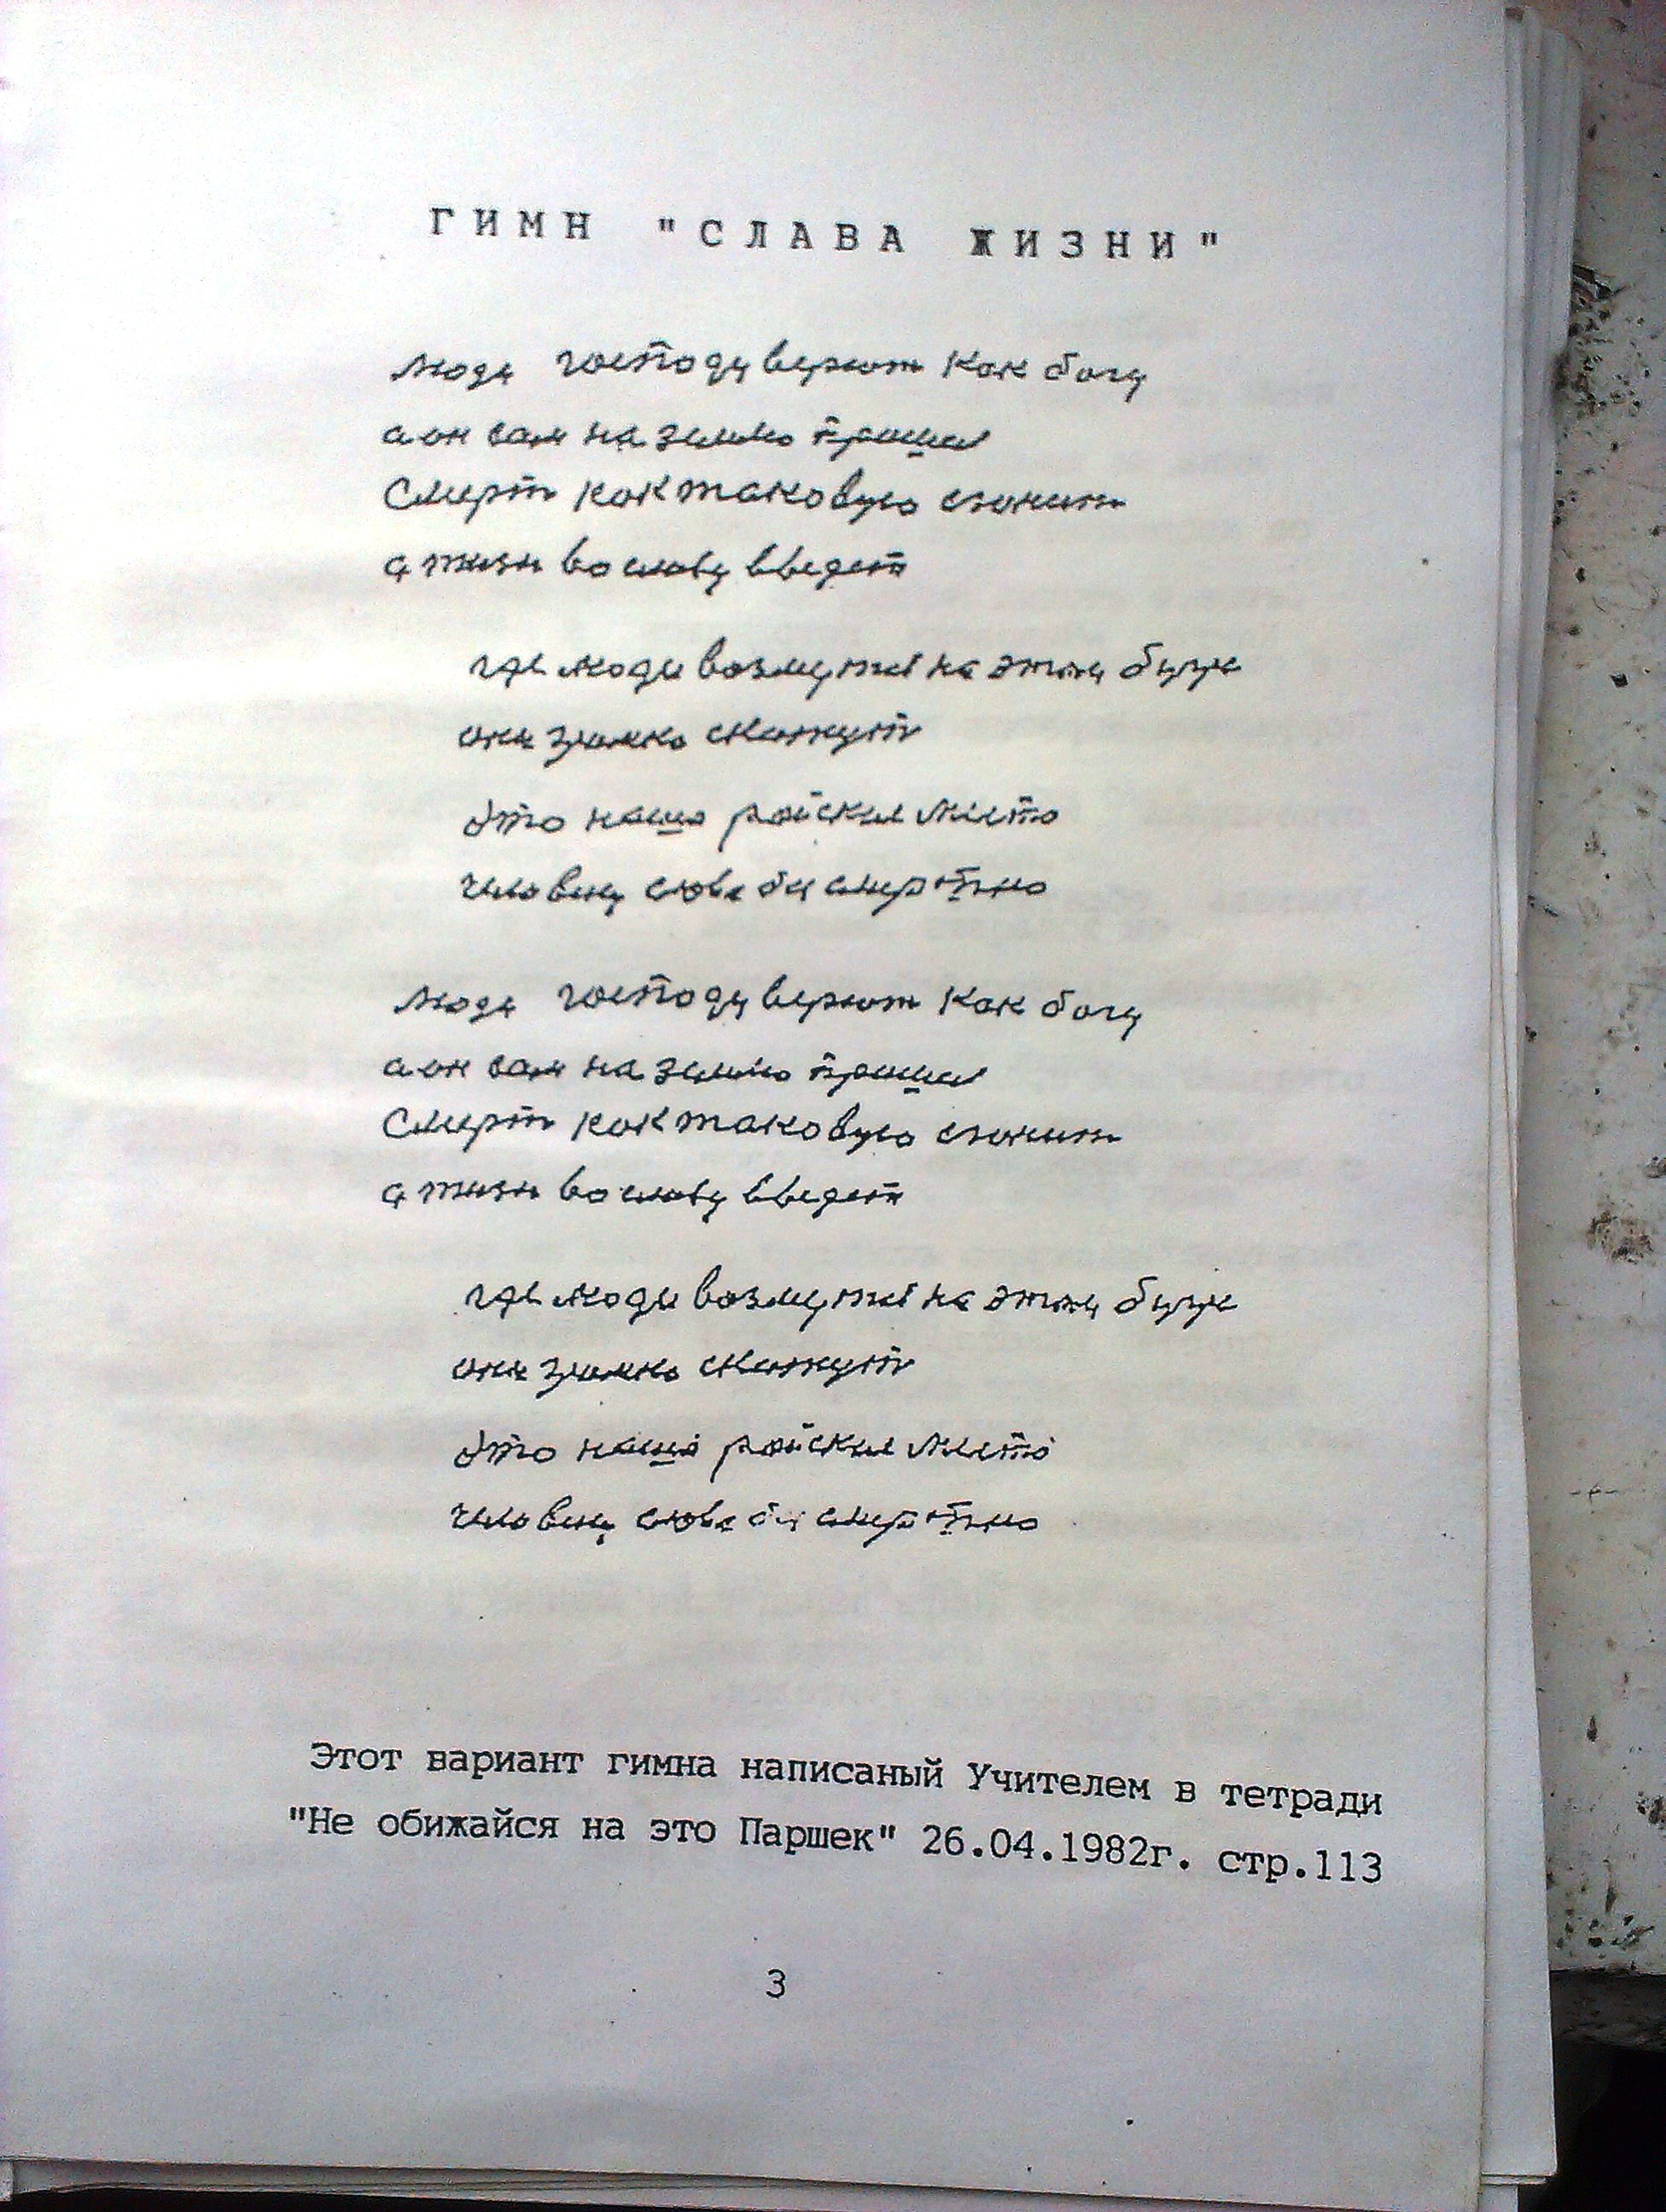 ГИМН "СЛАВА ЖИЗНИ"
люди господу верют как богу
а он сам на землю пришел
Смерт как таковую изгонит
а жизн во славу введет
где люди возмутса на этом бугре
они громко скажут
это наша райския место
человеку слова бисмертно
люди господу верют как богу
а он сам на землю пришел
Смерт как таковую изгонит
а жизн во славу введет
где люди возмутса на этом бугре
они громко скажут
это наша райския место
человеку слова бисмертно
Этот вариант гимна написаный Учителем в тетради
"Не обижайся на это Паршек" 26.04.1982г. стр.113
3